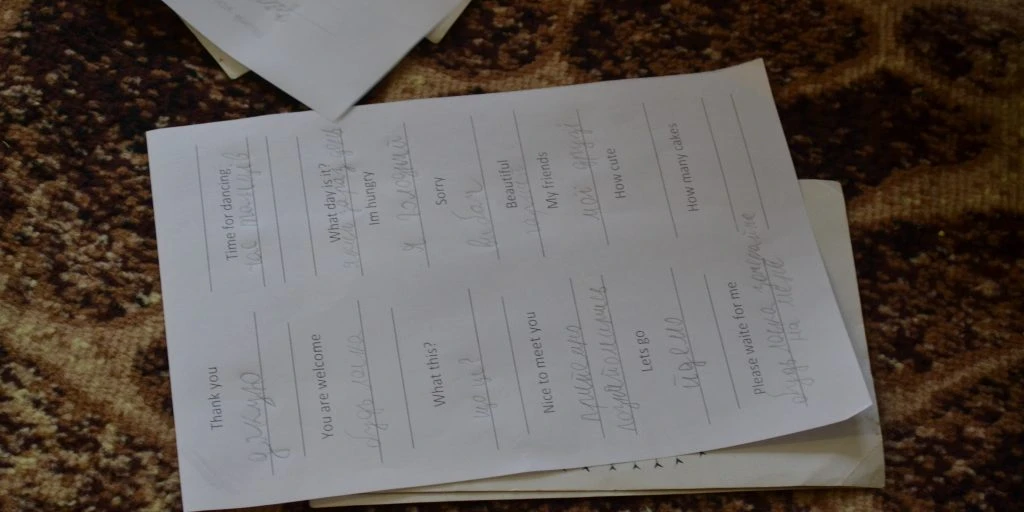 Thank you
дякую
You are welcome
будь ласка
What this?
що це?
Nice to meet you
приємно
познайомитись
Lets go
йдемо
Please waite for me
будь ласка зачекайте
на мене
Time for dancing
час танцув
What day is it?
Im hungry
я голодний
Sorry
вибач
Beautiful
My friends
мої друзі
How cute
How many cakes